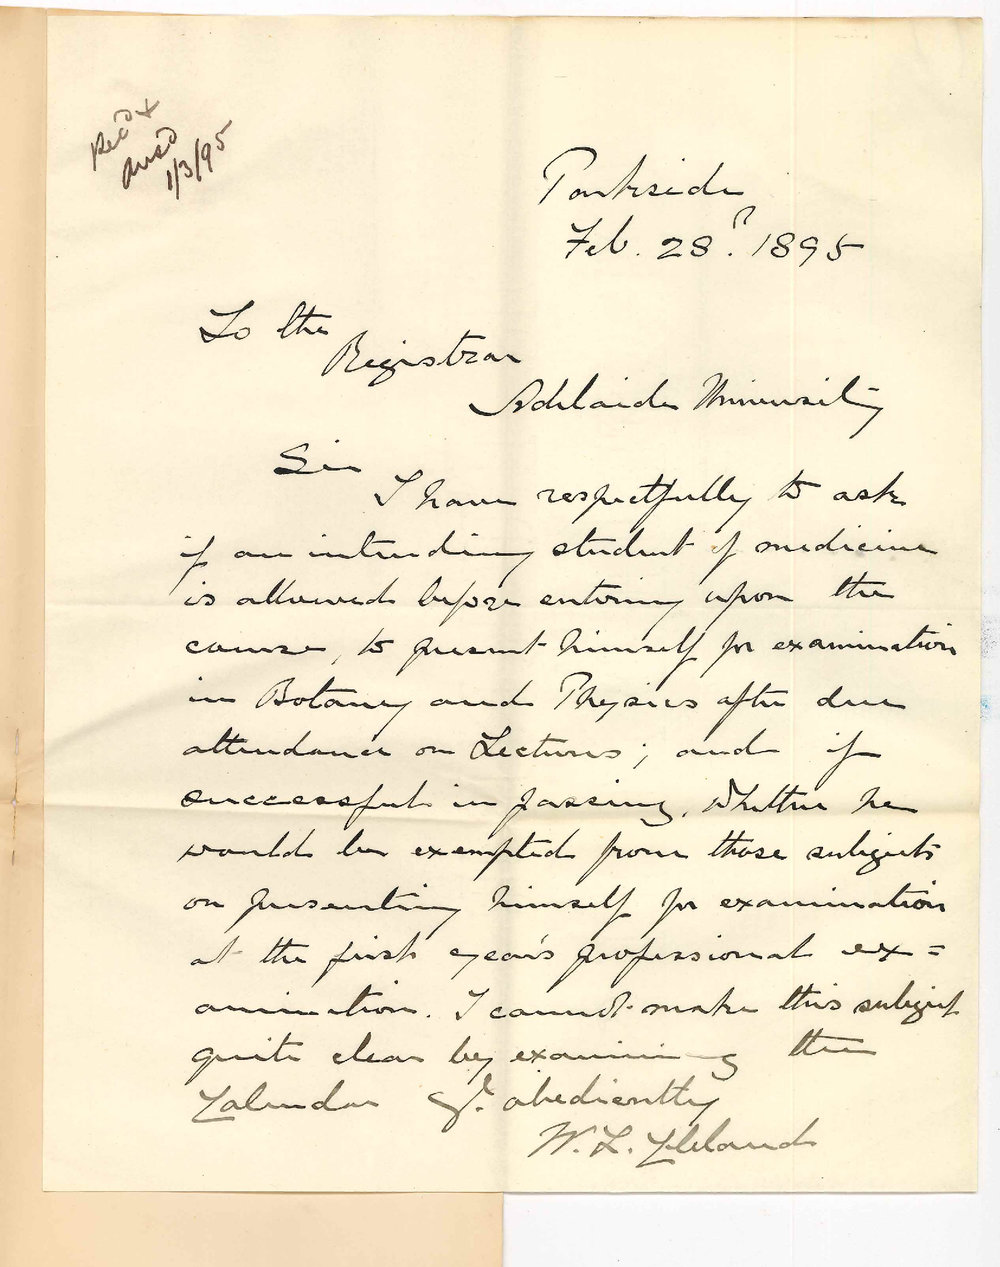 Rec'd +
Ans'd
1/3/95
Parkside
Feb. 28th. 1895
To the
Registrar
Adelaide University
Sir
I have respectfully to ask
if an intending student of medicine
is allowed before entering upon the
course, to present himself for examination
in Botany and Physics after due
attendance on Lectures; and if
successful in passing, whether he
would be exempted from those subjects
on presenting himself for examination
at the first year's professional ex=
amination. I cannot make this subject
quite clear by examining the
Calendar Yr. obediently
W. L. Cleland